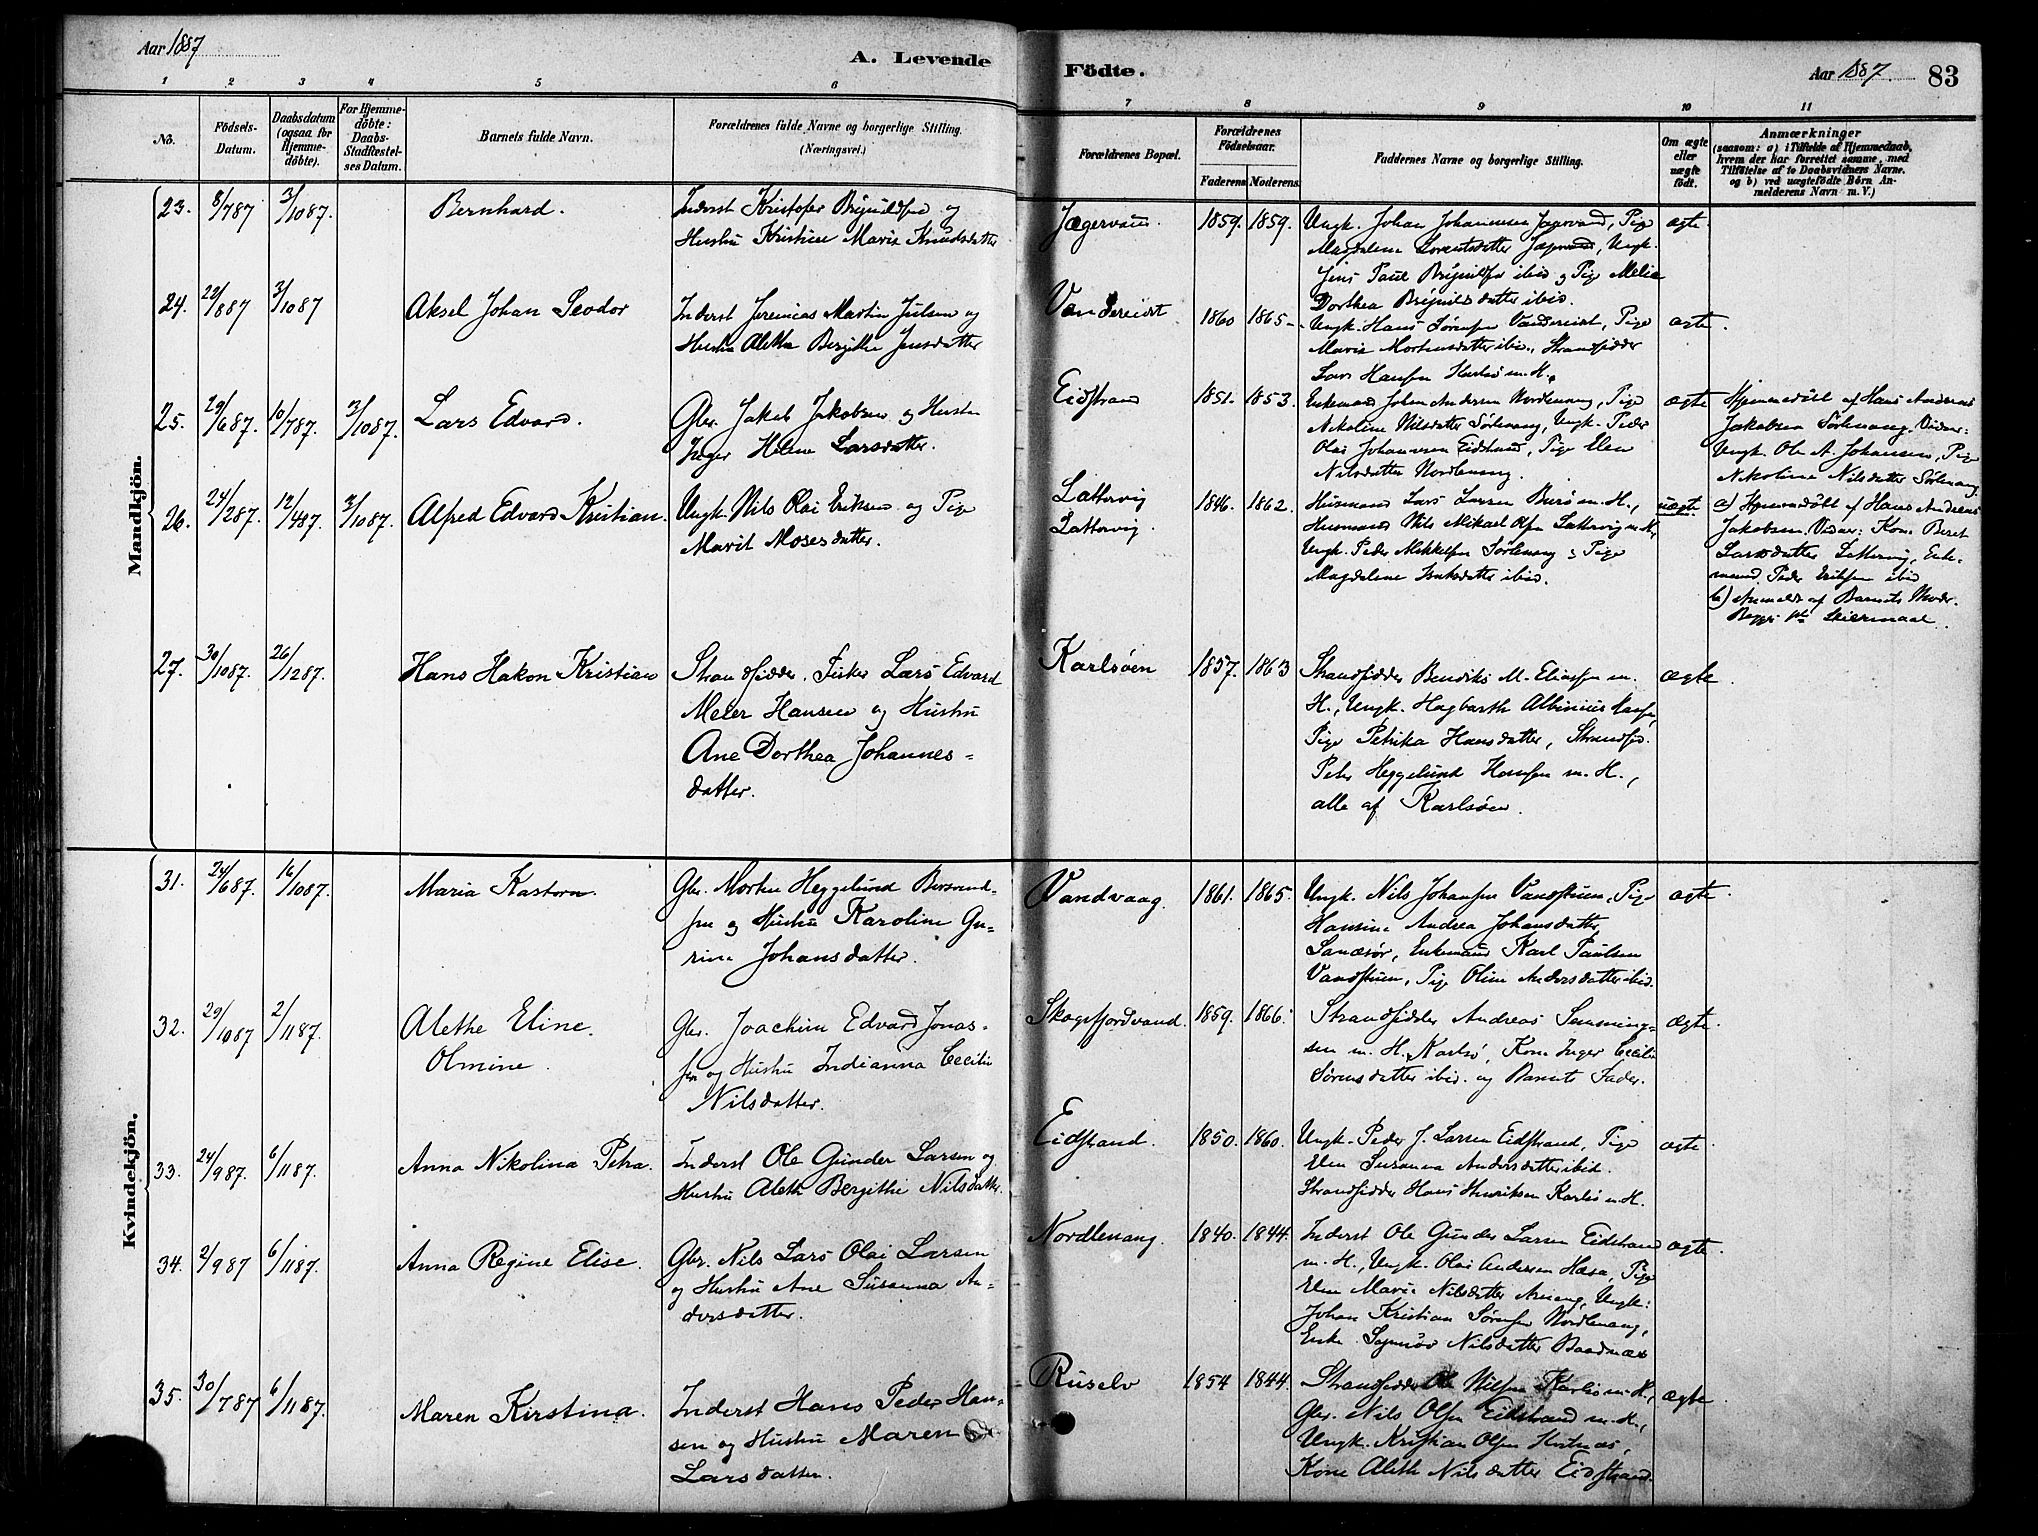 Aar 1887
A. Levende
Födte.
Aar 1887.
83
1 2 3 4 5 6 7 8 9 10 11
No.
Födsels-Datum.
Daabsdatum (ogsaa for Hjemme-döbte).
For Hjemme-döbte: Daabs-Stadfæstel-ses Datum.
Barnets fulde Navn.
Forældrenes fulde Navne og borgerlige Stilling.
(Næringsvei.)
Forældrenes Bopæl.
Forældrenes Födselsaar.
Faderens Moderens
Faddernes Navne og borgerlige Stilling.
Om ægte eller uægte födt.
Anmærkninger
(saasom: a) i Tilfælde af Hjemmedaab, hvem der har forrettet samme, med Tilföielse af to Daabsvidners Navne. og b) ved uægtefödte Börn An-melderens Navn m. V.)
Mandkjön.
23. 8/787 3/1087. Bernhard.
Inderst Kristofer Brynildsen og
Hustru Kristine Marie Knudsdatter
Jægervan 1859. 1859.
Ungk. Johan Johannesen Jægervand, Pige
Magdalene Lorentsdatter Jægervand, Ungk.
Jens Paul Brynildsen ibid og Pige Melia
Dorthea Brynildsdatter ibid.
ægte.
24. 22/887 3/1087 Aksel Johan Teodor
Inderst Jeremias Martin Julsen og
Hustru Aletta Bergitte Jensdatter
Vandereidet 1860 1865
Ungk. Hans Sørensen Vandereidet, Pige
Marie Mortensdatter ibid., Strandsidder
Lars Hansen Karlsø m. H.
ægte.
25. 29/687. 10/787. 3/1087. Lars Edvard.
Gbr. Jakob Jakobsen og Hustru
Inger Helene Larsdatter.
Eidstrand 1851. 1853.
Enkemand Johan Andersen Nordlenang, Pige
Nikoline Nilsdatter Sørlenang, Ungk. Peder
Olai Johannesen Eidstrand, Pige Elen
Nilsdatter Nordlenang.
ægte
Hjemmedøbt af Hans Andreas
Jakobsen Sørlenang. Vidner:
Ungk. Ole A. Johansen, Pige
Nikoline Nilsdatter Sørlenang.
26. 24/287. 12/487. 3/1087. Alfred Edvard Kristian.
Ungk. Nils Olai Eriksen og Pige
Marit Mosesdatter.
Lattervig
Lattervig.
1846. 1862.
Husmand Lars Larsen Burø m. H.,
Husmand Nils Mikael Olsen Lattervig m. H.
Ungk. Peder Mikkelsen Sørlenang og Pige
Magdalene Isaksdatter ibid.
uægte.
a) Hjemmedøbt af Hans Andreas
Jakobsen. Vidner: Kone Beret
Larsdatter Lattervig, Enke-
mand Peder Eriksen ibid
b) Anmeldt af Barnets Moder.
27. 30/1087. 26/1287. Hans Hakon Kristian
Strandsidder, Fisker Lars Edvard
Meier Hansen og Hustru
Ane Dorthea Johannes-
datter.
Karlsøen 1857. 1863
Strandsidder Bendiks M. Eliassen m.
H., Ungk. Hagbarth Albinius Hansen,
Pige Petrika Hansdatter, Strands.
Peter Heggelund Hansen m. H.,
alle af Karlsøen.
ægte.
Kvindekjön.
31. 24/687. 16/1087. Maria Kastora
Gbr. Morten Heggelund Bersvend-
sen og Hustru Karoline Gu-
rine Johansdatter.
Vandvaag. 1861. 1865.
Ungk. Nils Johansen Vandstuen, Pige
Hansine Andrea Johansdatter
Sanæsør, Enkemand Karl Paulsen
Vandstuen, Pige Oline Andersdatter ibid.
ægte.
32. 29/1087 2/1187. Alethe Eline.
Olmine.
Gbr. Joachim Edvard Jonas-
sen og Hustru Indianna Cecilie
Nilsdatter.
Skogsfjordvand. 1859. 1866.
Strandsidder Andreas Semming-
sen m. H. Karlsø, Kone Inger Cecilie
Sørensdatter ibid. og Barnets Fader.
ægte.
33. 24/987. 6/1187. Anna Nikolina Petra.
Inderst Ole Gunder Larsen og
Hustru Aleth Bergithe Nilsdatter.
Eidstrand. 1850. 1860.
Ungk. Peder J. Larsen Eidstrand, Pige
Elen Susanna Andersdatter ibid.
Strandsidder Hans Henriksen Karlsø m. H.
ægte
34. 2/987 6/1187. Anna Regine Elise.
Gbr. Nils Lars Olai Larsen
og Hustru Ane Susanna An-
dersdatter.
Nordlenang. 1840. 1844.
Inderst Ole Gunder Larsen Eidstrand
m. H., Ungk. Olai Andersen Hæsa, Pige
Elen Marie Nilsdatter Arneng, Ungk:
Johan Kristian Sørensen Nordlenang,
Enke Nilsdatter Baadnæs
ægte.
35. 30/787 6/1187. Maren Kirstina.
Inderst Hans Peder Han-
sen og Hustru Maren
Larsdatter.
Ruselv 1854 1844.
Strandsidder Ole Nilsen Karlsø m. H.,
Gbr. Nils Olsen Eidstrand m. H.,
Ungk. Kristian Olsen
Kone Aleth Nilsdatter Eidstrand.
ægte.